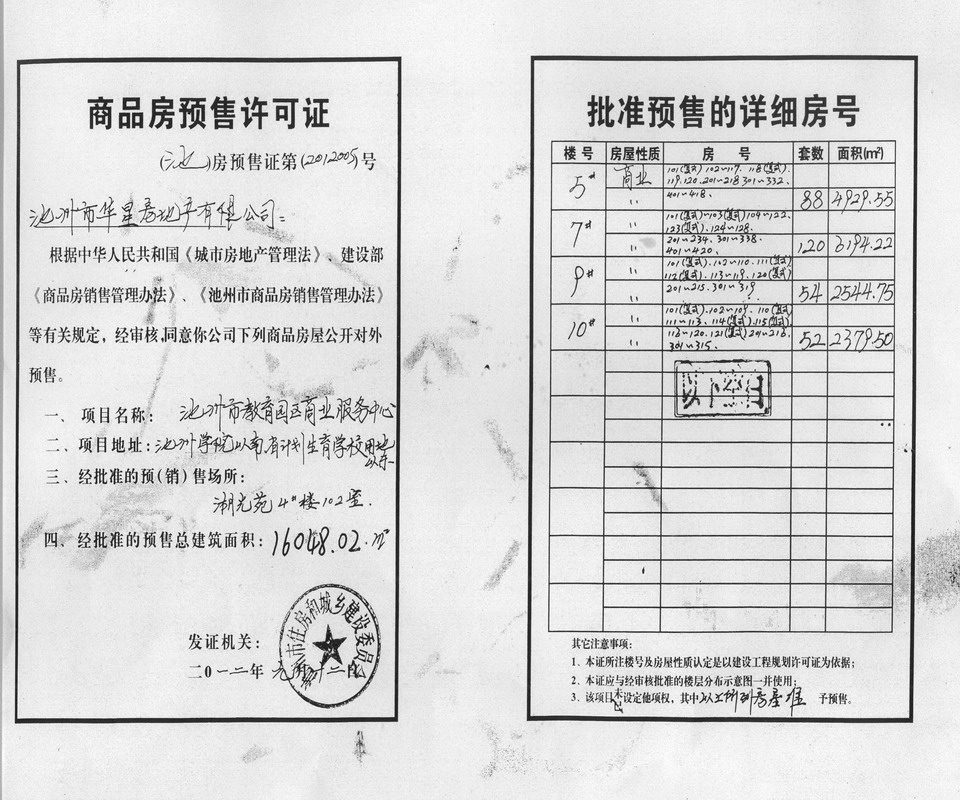 商品房预售许可证
(池)房预售证第(2012005)号
池州市华星房地产有限公司：
根据中华人民共和国《城市房地产管理法》、建设部
《商品房销售管理办法》、《池州市商品房销售管理办法》
等有关规定，经审核,同意你公司下列商品房屋公开对外
预售。
一、 项目名称： 池州市教育园区商业服务中心
二、项目地址：池州学院以南,省计划生育学校用地以东
三、经批准的预(销)售场所：
湖光苑4#楼102室.
四、经批准的预售总建筑面积：16048.02.㎡
市住房和城乡建设委员会
发证机关：
二0一二年 元月十二日
批准预售的详细房号
楼号 房屋性质 房 号 套数 面积(m²)
5# 商业 101(复式) 102～117. 118(复式).
119.120.201～218 301～332.
〃 401～418. 88 4929.55
7# 〃 101(复式)～103(复式)104～122.
123(复式).124～128.
〃 201～234. 301～338.
401～420. 120 6194.22
9# 〃 101(复式).102～110.111(复式)
112(复式).113～119.120(复式)
〃 201～215.301～319 54 2544.75
10# 〃 101(复式).102～109. 110(复式)
111～113. 114(复式).115(复式)
〃 116～120.121(复式)201～216.
301～315. 52 2379.50
以下空白
其它注意事项：
1、本证所注楼号及房屋性质认定是以建设工程规划许可证为依据；
2、本证应与经审核批准的楼层分布示意图一并使用；
3、该项目未设定他项权，其中以上所列房屋准 予预售。